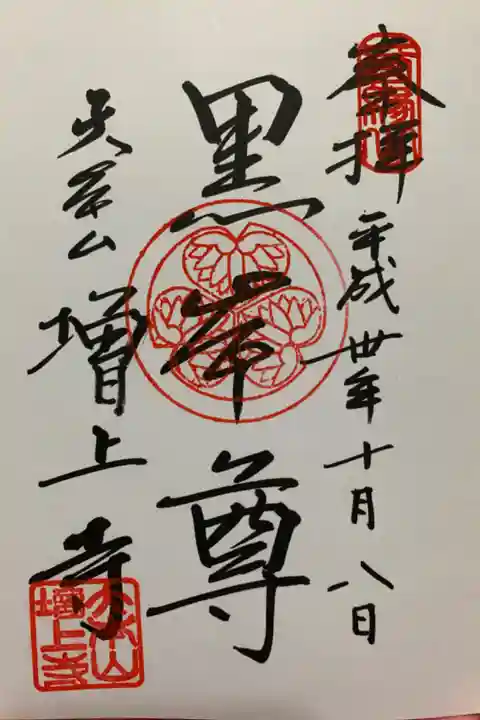 奉拝 平成卅年十月八日
黒本尊
大本山 増上寺
大本山
増上寺